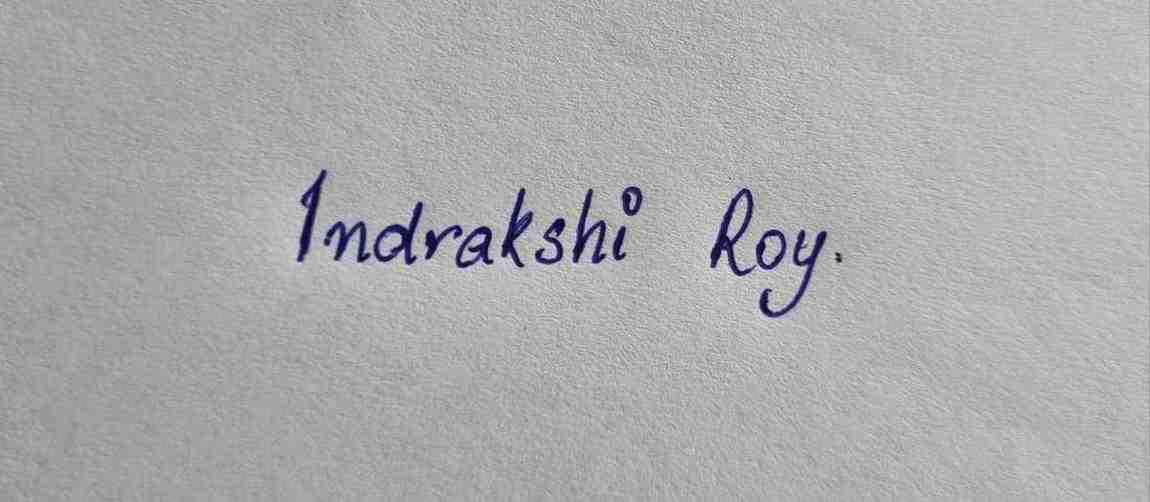 Indrakshi Roy.